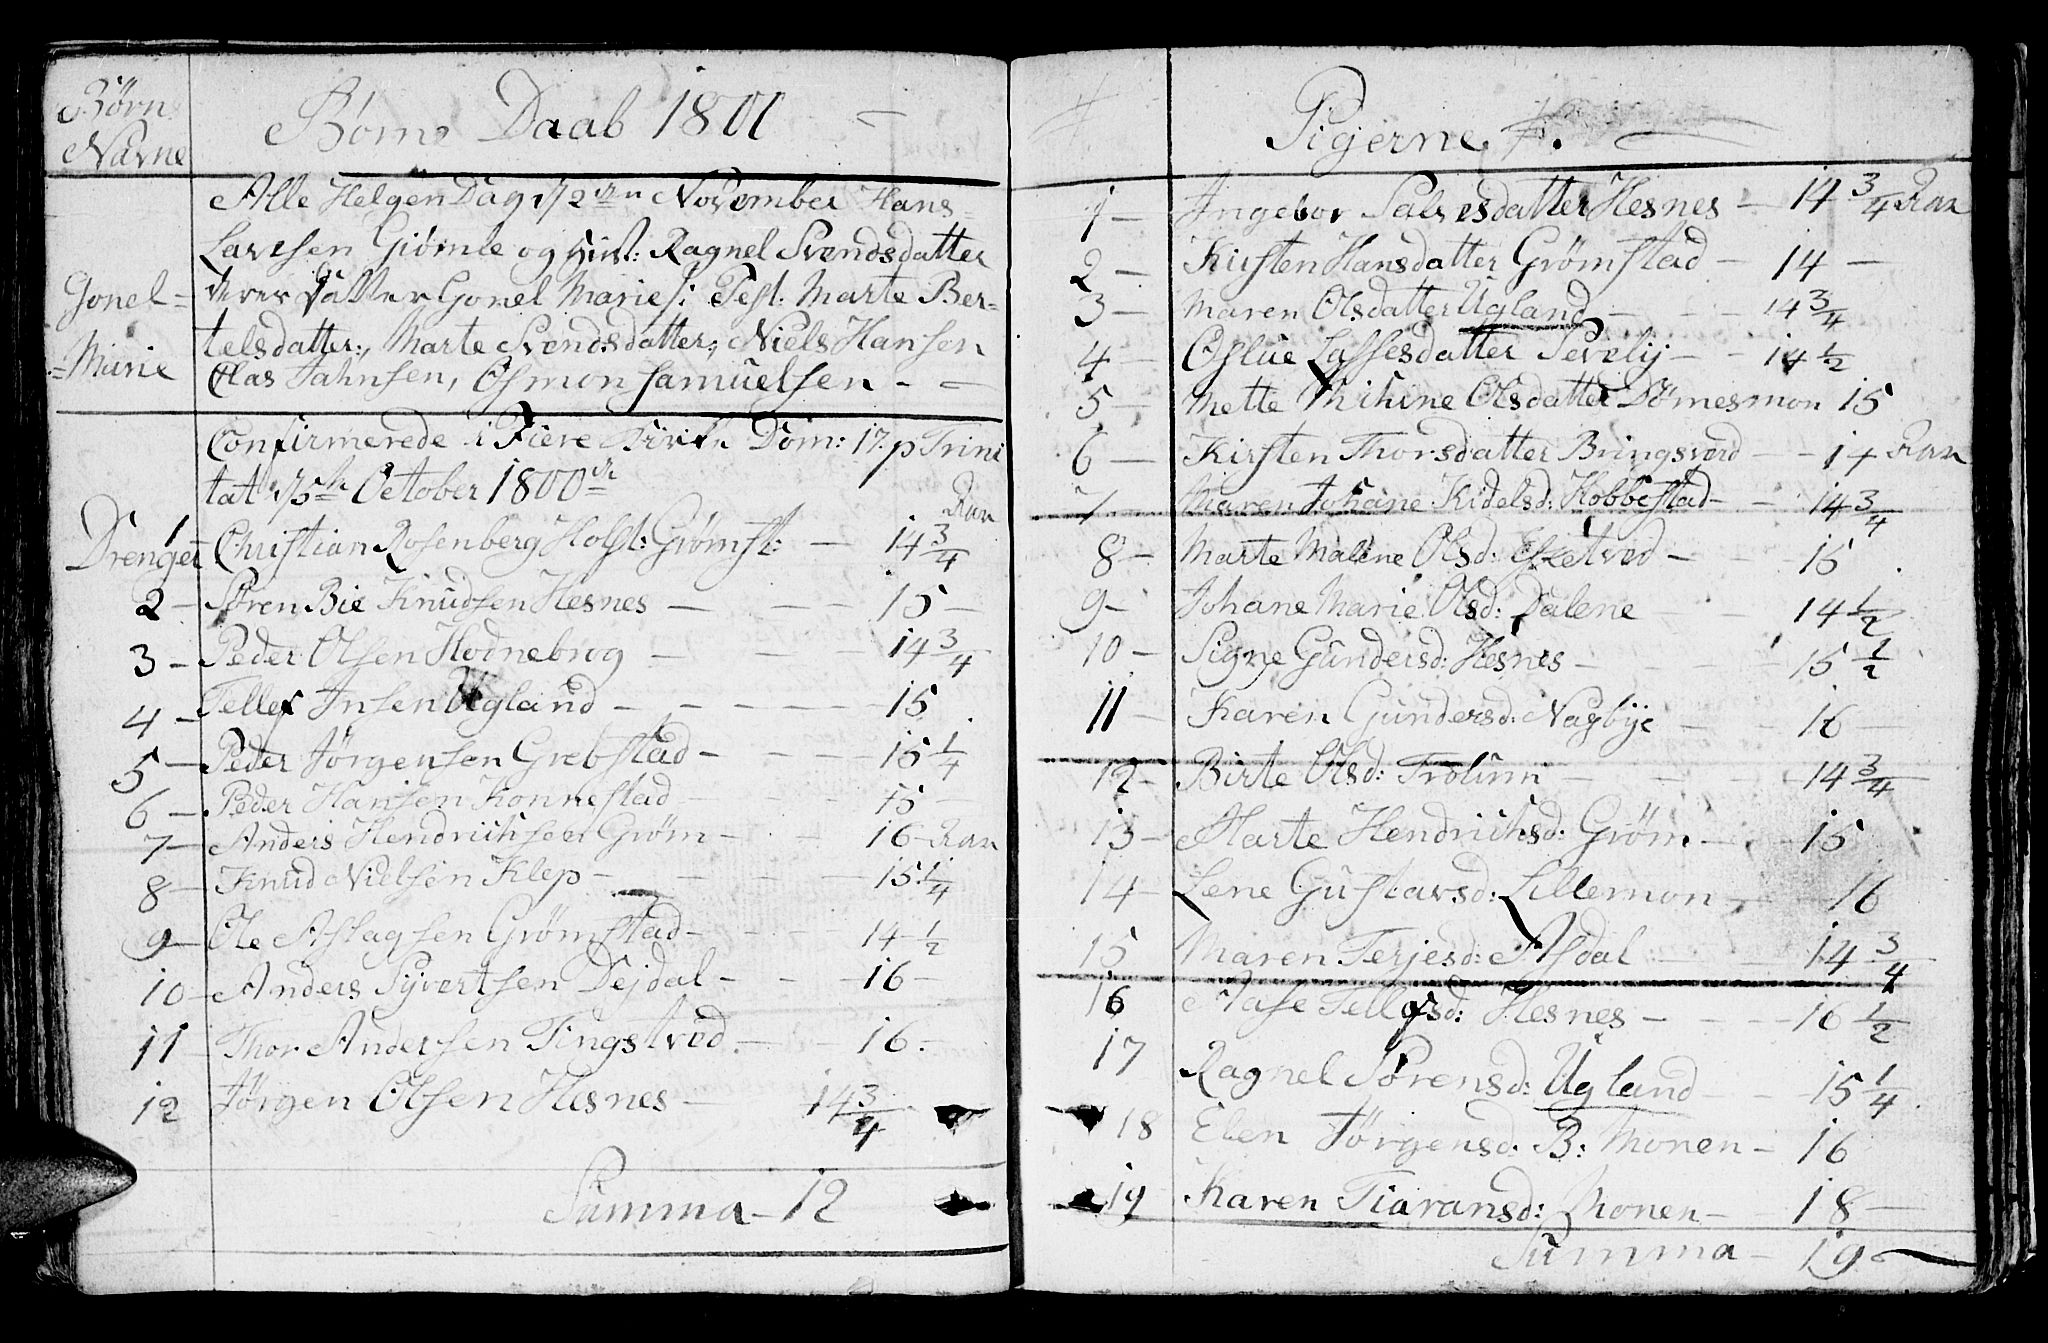 Børn
Navne
Børne Daab 1800
Alle Helgen Dag d/2den November Hans
Larsen Giømle og Hust: Ragnel Svendsdatter
deres datter Gonel Marie f: Test: Marte Ber-
telsdatter, Marte Svendsdatter, Niels Hansen
Olas Jahnsen, Osmon Samuelsen - -
Gonel=
=Marie
Confirmerede i Fiere Kirke Dom: 17 p Trini
tat d/5te October 1800
Drenger
1 Christian Rosenberg Holst: Grømst: - 14 3/4 Ran
2 - Søren Bie Knudsen Hesnes - 15 -
3 - Peder Olsen Hodnebrog - 14 3/4
4 - Tellef Insen Ugland - 15
5 - Peder Jørgensen Grebstad - 15 1/4
6 - Peder Hansen Konnestad - 15 -
7 - Anders Hendrichsen Grøm - 16 - Ran
8 - Knud Nielsen Klep - 15 1/4
9 - Ole Aslagsen Grømstad - 14 1/2
10 - Anders Syvertsen Dejdal - 16 -
11 - Thor Andersen Tingstved - 16 -
12 Jørgen Olsen Hesnes - 14 3/4
Summa - 12
Pigerne
1 - Ingebor Salvesdatter Hesnes - 14 3/4 Ran
2 - Kirsten Hansdatter Grømstad - 14 -
3 - Maren Olsdatter Ugland - 14 3/4
4 - Oslue Lassesdatter Sevely - 14 1/2
5 - Mette Olsdatter Dømesmon 15
6 - Kirsten Thorsdatter Bringsverd - 14 Ran
7 - Maren Johane Kidelsd: Hobbestad - 14 3/4
8 - Marte Malene Olsd: Esketved - 15
9 - Johane Marie Olsd: Dalene 14 1/2
10 - Signe Gundersd: Hesnes - 15 1/2
11 - Karen Gundersd: Nagbye - 16 -
12 - Birte Olsd: - 14 3/4
13 - Marte Hendrichsd: Grøm - 15
14 - Lene Gustavsd: Lillemon - 16
15 Maren Terjesd: Asdal 14 3/4
16 Aase Tellefsd: Hesnes - 16 1/2
17 Ragnel Sørensd: Ugland - 15 1/4
18 Elen Jørgensd: B: Monen - 16
19 Karen Tiaransd: Monen - 18 -
Summa - 19